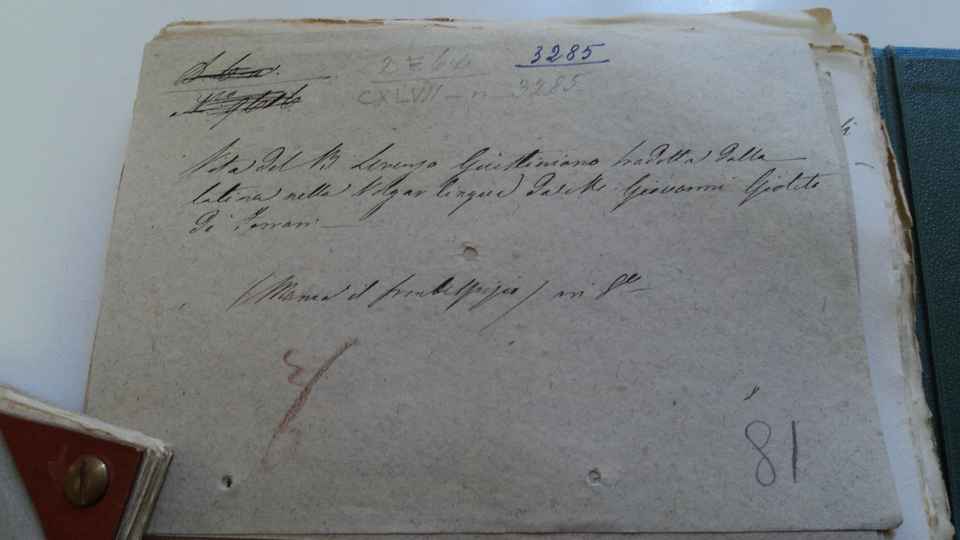 3285
CXLVII - n 3285
Vita del B Lorenzo Giustiniano tradotta dalla
latina nella Volgar lingua da M. Giovanni Giolito
di Ferrari
(Manca il frontespizio) in 8vo
81